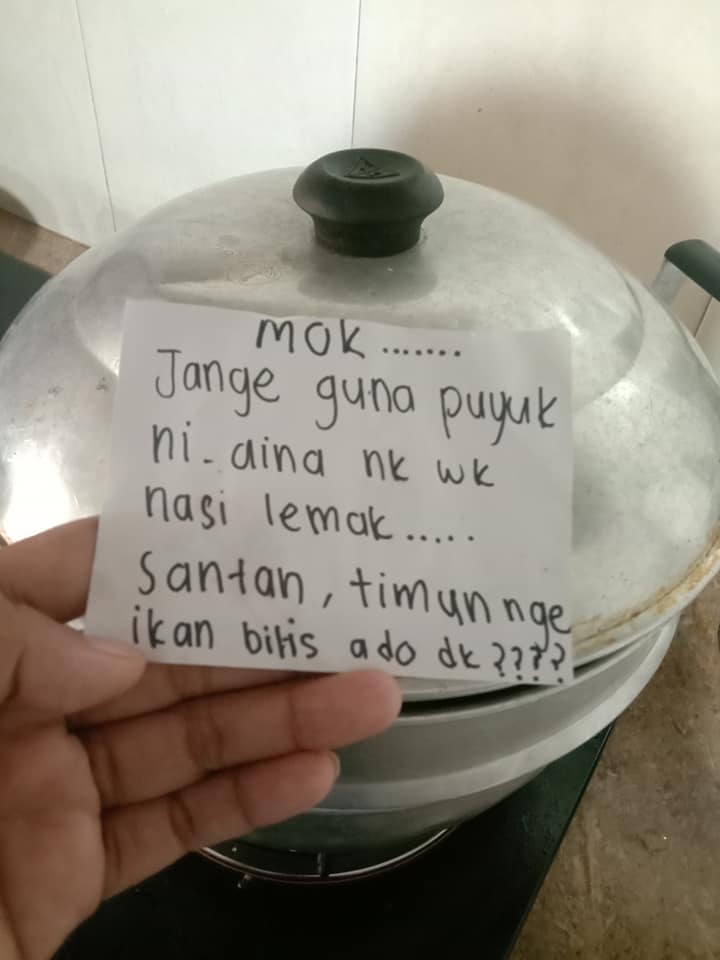 MOK.......
Jange guna puyuk
ni. aina nk wk
nasi lemak.....
Santan, timun nge
ikan bilis ado dk????